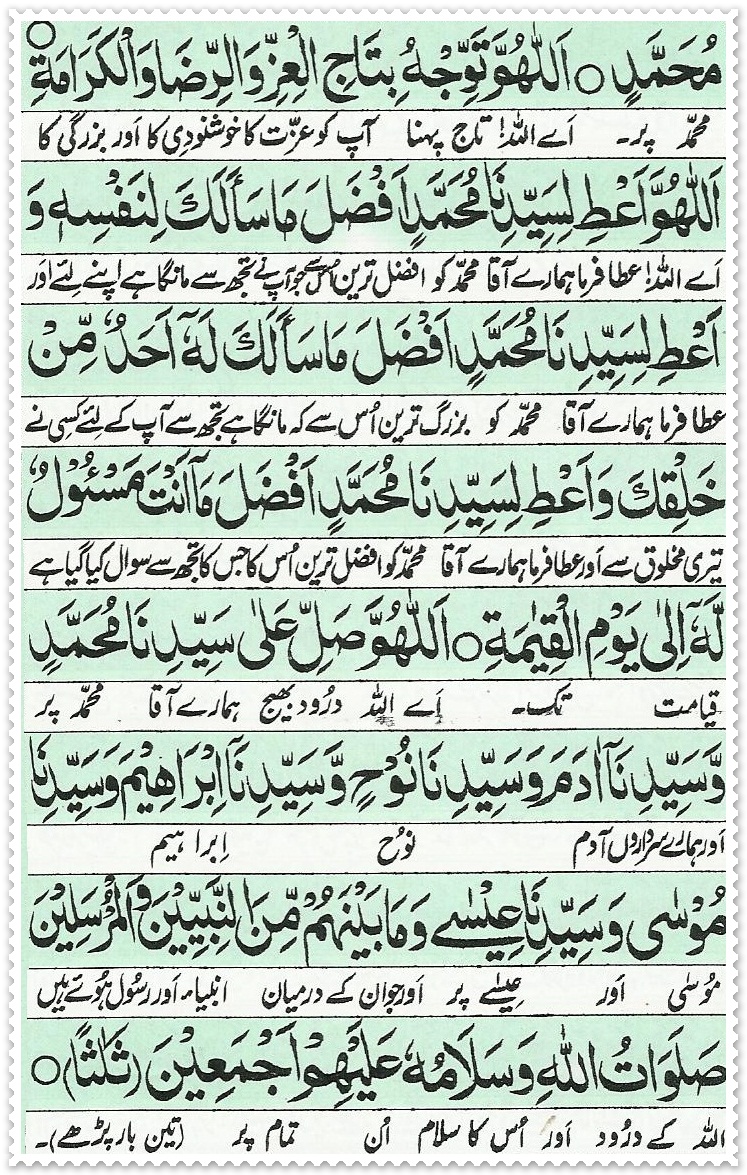 مُحَمَّدٍ ○ اَللّٰهُمَّ تَوِّجْهُ بِتَاجِ الْعِزِّ وَالرِّضَا وَالْكَرَامَةِ ○
محمّد پر۔ اَے اللہ! تاج پہنا آپ کو عزّت کا خوشنودِی کا اَور بزرگی کا
اَللّٰهُمَّ اَعْطِ لِسَيِّدِنَا مُحَمَّدٍ اَفْضَلَ مَا سَأَلَكَ لِنَفْسِهٖ وَ
اَے اللہ! عطا فرما ہمارے آقا محمّد کو افضل ترین اُس سے جو آپ نے تجھ سے مانگا ہے اپنے لِئے اَور
اَعْطِ لِسَيِّدِنَا مُحَمَّدٍ اَفْضَلَ مَا سَأَلَكَ لَهٗٓ اَحَدٌ مِّنْ
عطا فرما ہمارے آقا محمّد کو بزرگ ترین اُس سے کہ مانگا ہے تجھ سے آپ کے لِئے کسِی نے
خَلْقِكَ وَاَعْطِ لِسَيِّدِنَا مُحَمَّدٍ اَفْضَلَ مَآ اَنْتَ مَسْئُوْلٌ
تیری مخلوق سے اَور عطا فرما ہمارے آقا محمّد کو افضل ترین اُس کا جس کا تجھ سے سوال کیا گیا ہے
لَّهٗٓ اِلٰى يَوْمِ الْقِيٰمَةِ ○ اَللّٰهُمَّ صَلِّ عَلٰى سَيِّدِنَا مُحَمَّدٍ
قیامت تک۔ اَے اللہ درُود بھیج ہمارے آقا محمّد پر
وَّسَيِّدِنَآ اٰدَمَ وَسَيِّدِنَا نُوْحٍ وَّسَيِّدِنَآ اِبْرَاهِيْمَ وَسَيِّدِنَا
اَور ہمارے سرداروں آدم نوُح اِبراہیم
مُوْسٰى وَسَيِّدِنَا عِيْسٰے وَمَا بَيْنَهُمْ مِّنَ النَّبِيِّيْنَ وَالْمُرْسَلِيْنَ
موُسٰی اَور عِیسٰے پر اَور جو اِن کے درمیان انبیاء اَور رسُول ہُوئے ہیں
صَلَوَاتُ اللّٰهِ وَسَلَامُهٗ عَلَيْهِمْ اَجْمَعِيْنَ (ثَلٰثًا) ○
اللہ کے درُود اَور اُس کا سلام اُن تمام پر (تین بار پڑھے)۔